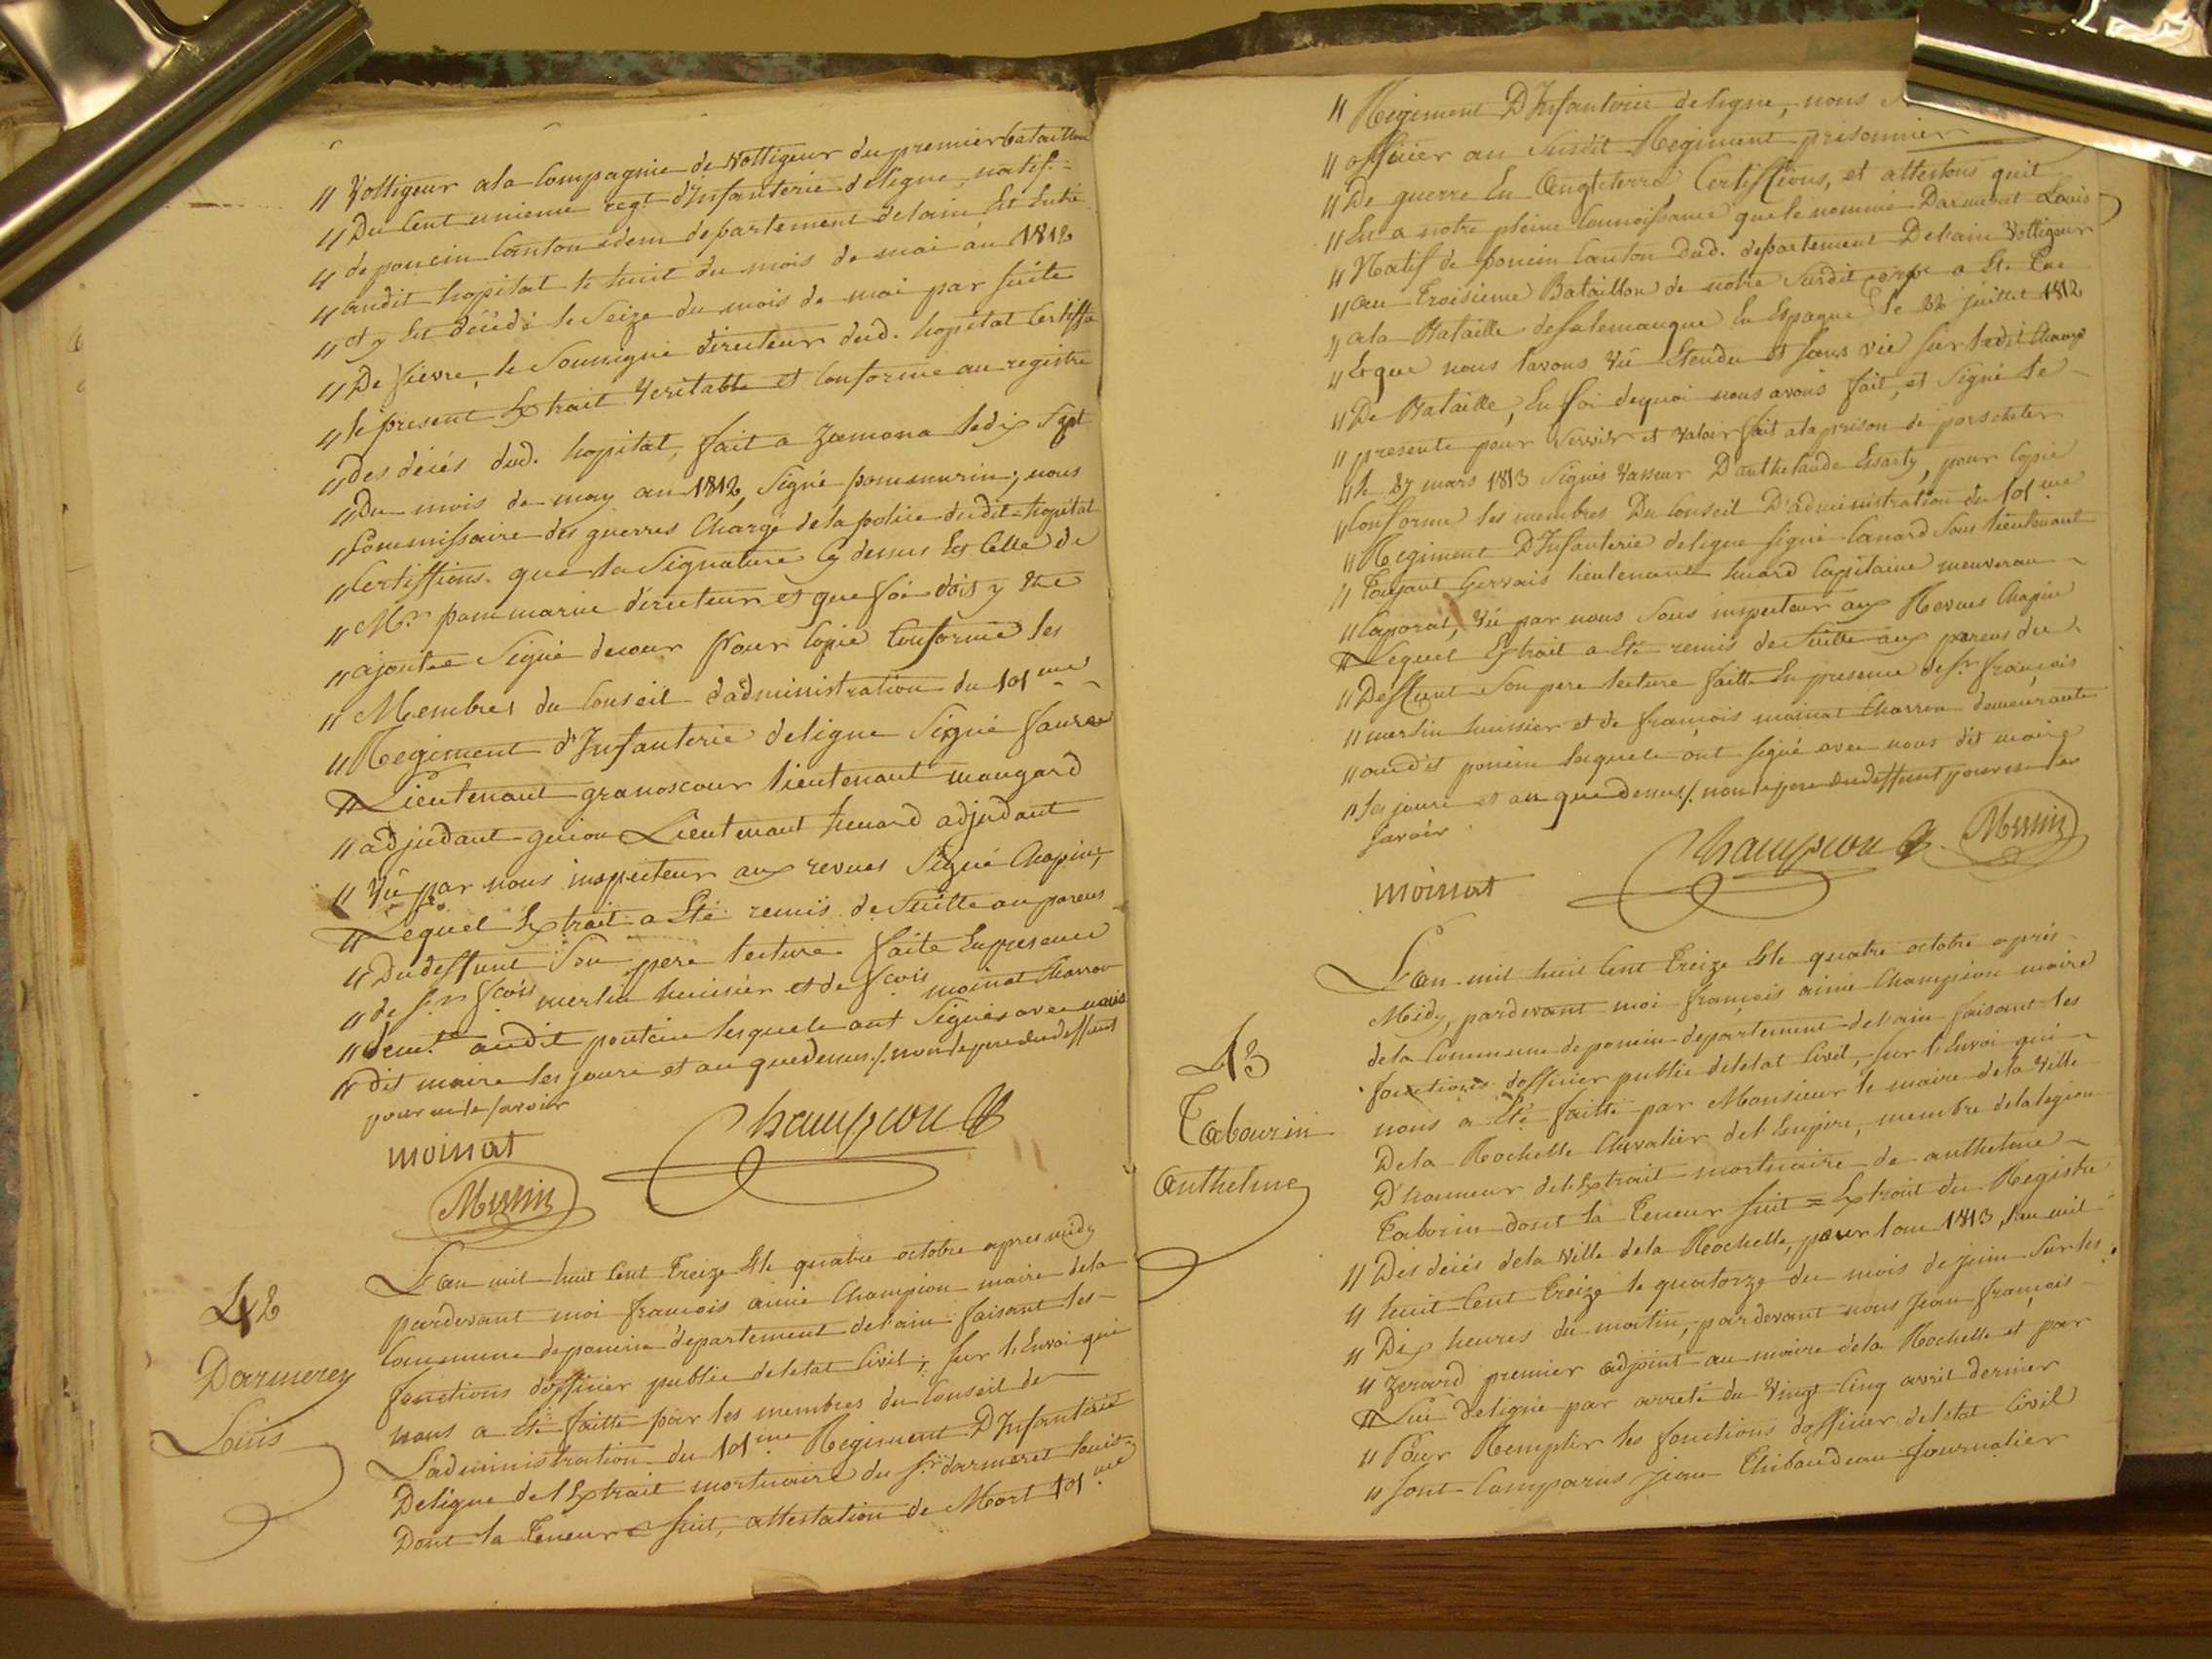 " Voltigeur ala Compagnie de Voltigeur du premier bataillon
" Du Cent unieme regt. d'Infanterie deligne, natif
" de poncin Canton idem departement delain Est Entré
" audit hopital le huit du mois de mai an 1812
" et y Est décédé le Seize du mois de mai par suite
" De fievre, le Soussigné directeur dud. hopital Certiffie
" le present Extrait Veritable et Conforme au registre
" des décés dud. hopital, fait a Zamora ledix Sept
" Du mois de may an 1812, Signé pommarin; nous
" Commissaire des guerres Chargé dela police dudit hopital
" Certiffions que la Signature Cy dessus Est Celle de
" Mr. pommarin directeur et que foi dois y Etre
" ajoutee Signé decour Pour Copie Conforme les
" Membres du Conseil d'administration du 101me
" Regiment d'Infanterie deligne Signé faure
" Lieutenant granoscour lieutenant maugard
" adjudant guiou Lieutenant huard adjudant
" Vû par nous inspecteur aux revues Signé Chopin;
" Lequel Extrait a Eté remis de Suitte au parens
" Dudeffunt Son pere lecture faite En presence
" de Sr. fcois merlin huissier et de fcois moinat Charron
" demt. audit poncin lesquels ont Signés avec nous
" dit maire les jours et an quedessus /. non le pere dudeffunt
pour ne le savoir
moinat
Champion
Merlin
42
Darmerey
Louis
L'an mil huit Cent Treize & le quatre octobre apres midy
pardevant moi françois aimé Champion maire dela
Commune deponcin departement delain faisant les
fonctions d'officier public deletat Civil, sur l'Envoi qui
nous a Eté faitte par les membres du Conseil de
L'administration du 101me Regiment D'Infanterie
Deligne del'Extrait mortuaire du Sr. darmeret Louis
Dont la Teneur suit, attestation de Mort 101me
" Regiment D'Infanterie deligne, nous
" officier au Susdit Regiment prisonnier
" De guerre En Angleterre Certiffions, et attestons quil
" En a notre pleine Connoissance que le nommé Darmeret Louis
" Natif de poncin Canton dud. departement Delain Voltigeur
" au Troisieme Bataillon de notre Susdit corps a Eté Tué
" ala Bataille deSalemanque En Espagne le 22 juillet 1812
" Et que nous l'avons Vû Etendu et sans vie sur ledit Champ
" De Bataille, En foi dequoi nous avons fait, et Signé le
" presente pour Servir et Valoir fait ala prison de porscheter
" le 27 mars 1813 Signés Vasseur Danthelande Essarty, pour Copie
" Conforme les membres Du Conseil D'administration du 101me
" Regiment D'Infanterie deligne Signé Canard Sous lieutenant
" Gervais lieutenant huard Capitaine meuverau
" Caporal, Vû par nous Sous inspecteur aux Revues Chopin
" Lequel Extrait a Eté remis de Suitte aux parens du
" Deffunt Son pere lecture faitte En presence de Sr. françois
" merlin huissier et de françois moinat Charron demeurants
" audit poncin lesquels ont signé avec nous dit maire
" les jours et an que dessus /. non le pere dudeffunt pour ne le
savoir
moinat
Champion
Merlin
43
Tabourin
Anthelme
L'an mil huit Cent Treize & le quatre octobre après
Midy, pardevant moi françois aimé Champion maire
dela Commune deponcin departement delain faisant les
fonctions d'officier public deletat Civil, sur l'Envoi qui
nous a Eté faitte par Monsieur le maire dela Ville
Dela Rochelle Chevalier del'Empire, membre delalegion
D'honneur del'Extrait mortuaire de anthelme
Taborin dont la Teneur suit = Extrait du Registre
" Des décés dela Ville dela Rochelle, pour l'an 1813, l'an mil
" huit Cent Treize le quatorze du mois dejuin Sur les
" Dix heures du matin, pardevant nous Jean françois
" Zerard premier adjoint au maire dela Rochelle et par
" Lui deligué par arreté du Vingt Cinq avril dernier
" Pour Remplir les fonctions d'officier deletat Civil
" sont Comparus Jean Thibaudeau Journalier